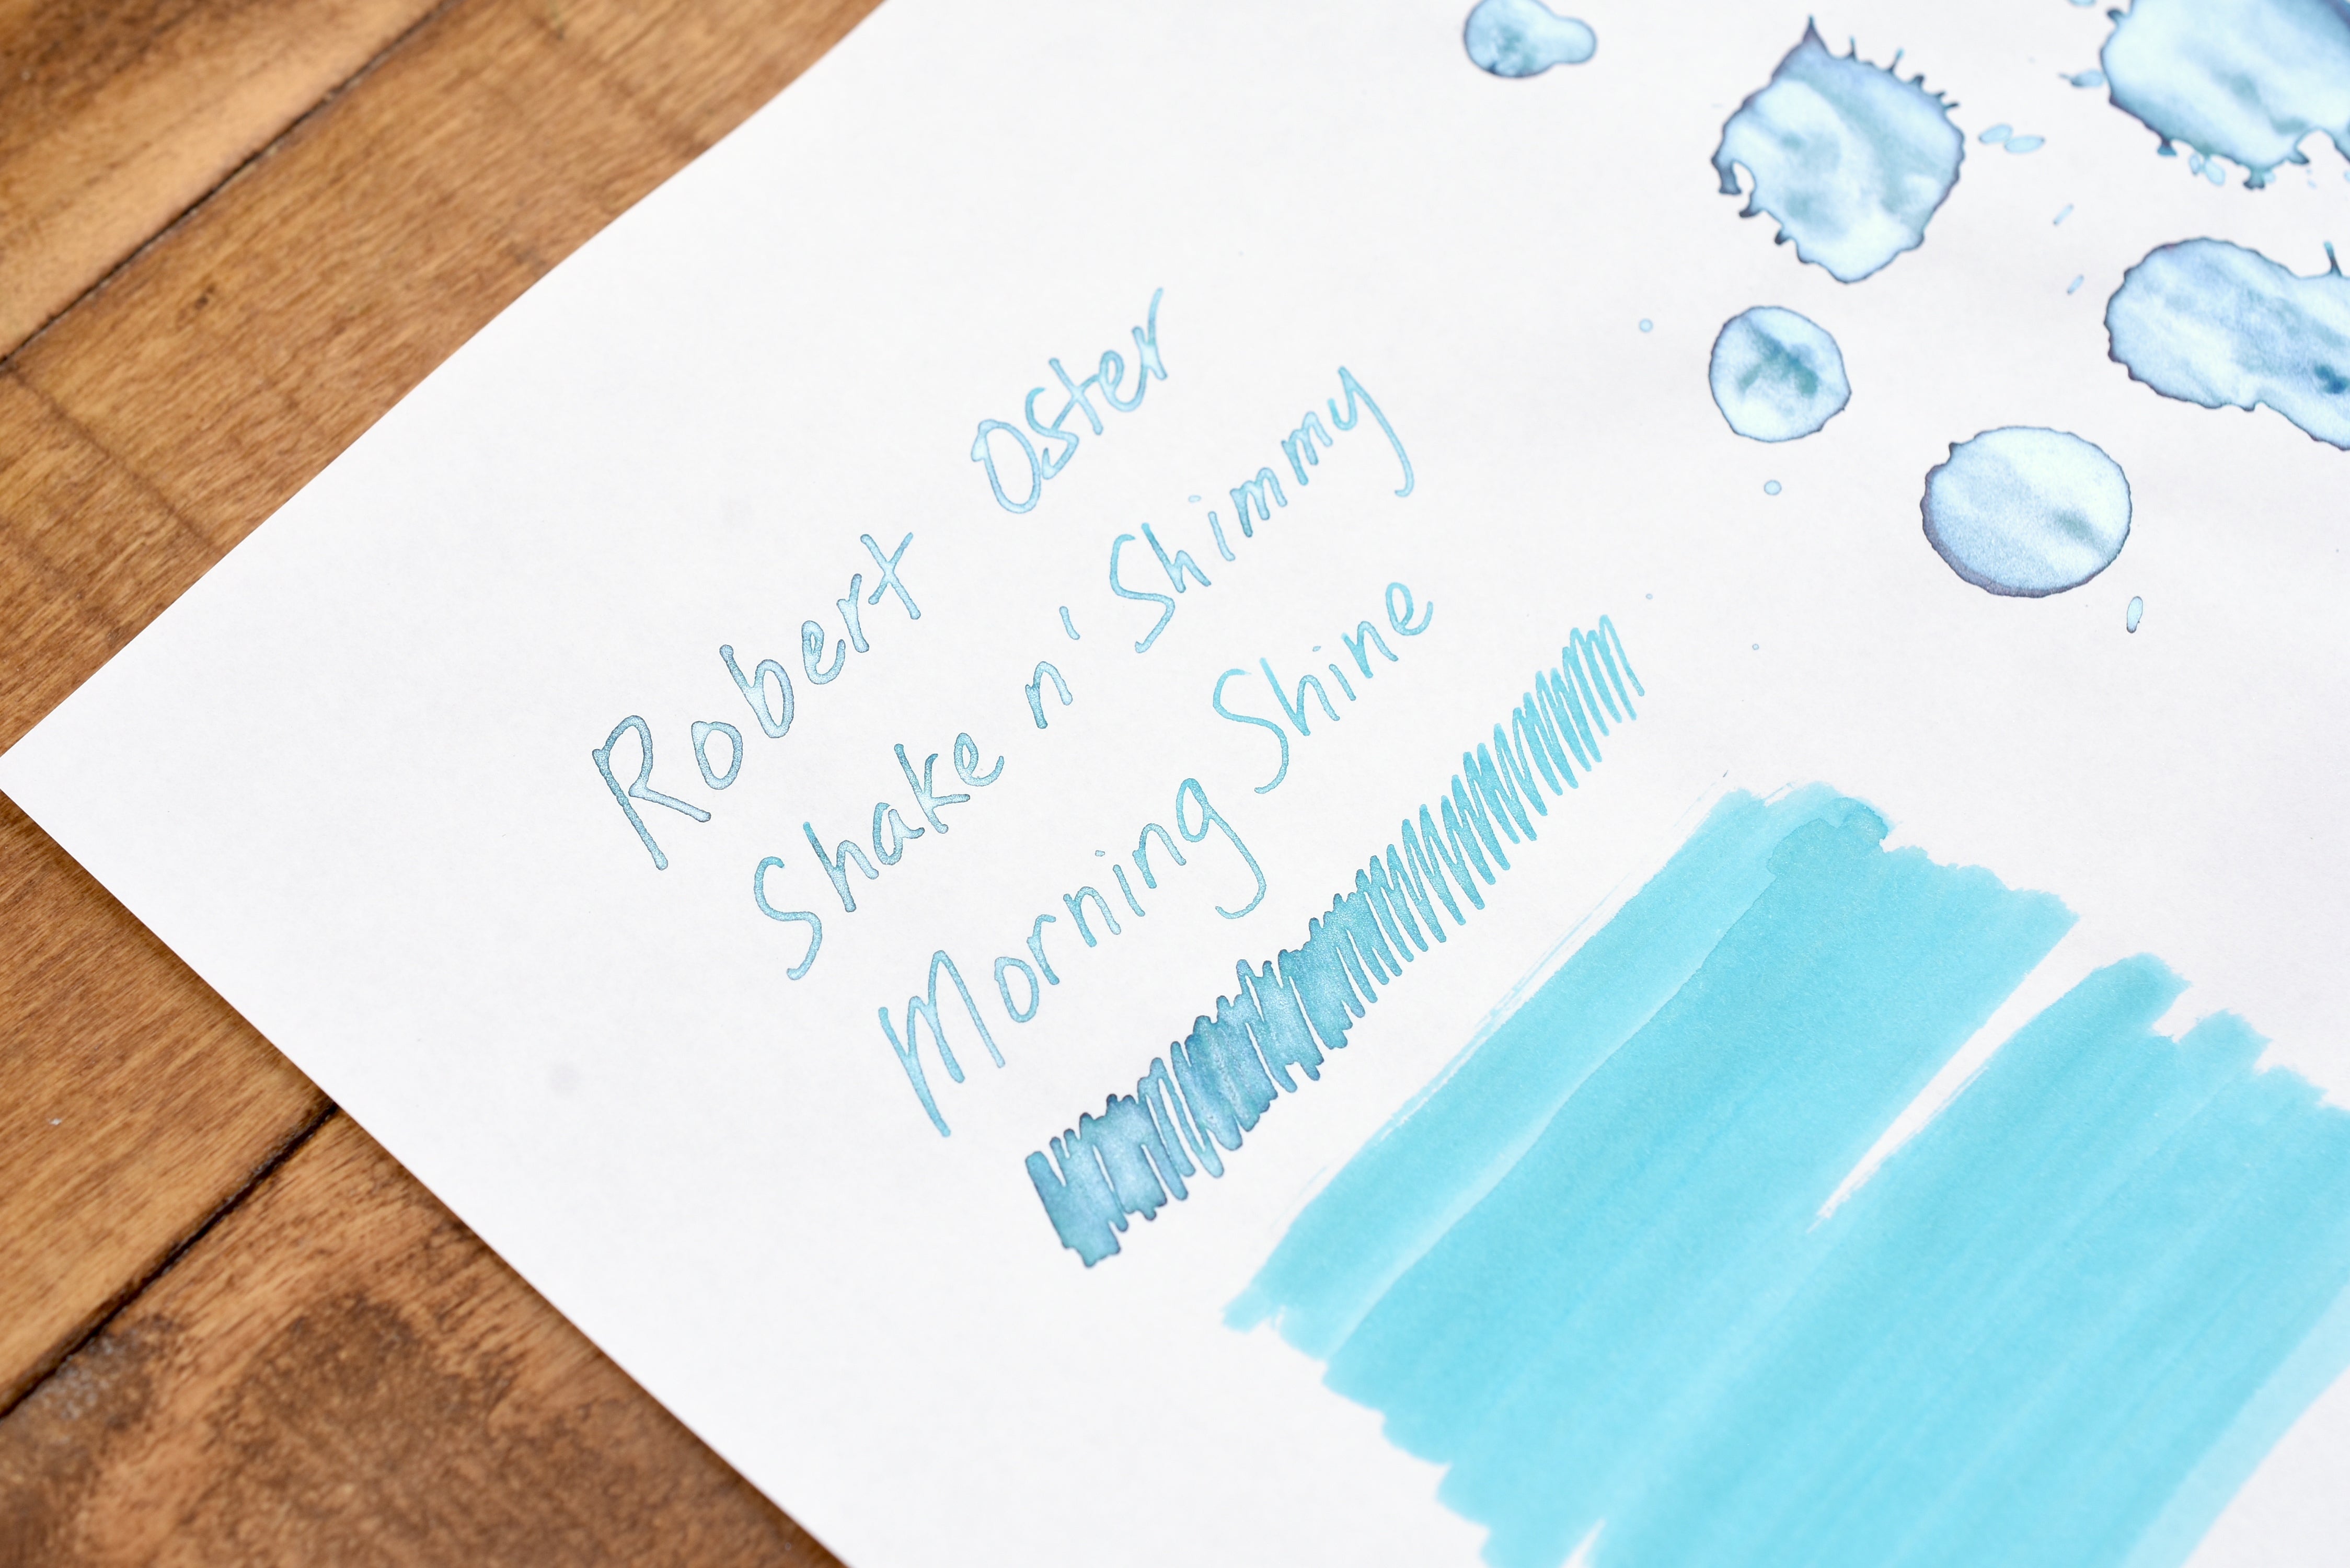 Robert Oster
Shake n' Shimmy
Morning Shine